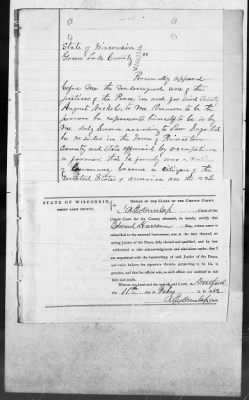 State of Wisconsin
Green Lake County } ss
Personally appeared
before me the undersigned one of the
justices of the Peace in and for said County
August Nickel, to me known to be the
person he represents himself to be is by
me duly sworn according to law Says that
he resides in the Town of Princeton
County and State aforesaid by occupation
a farmer that he formerly was a
Germany became a Citizen of the
United States of America on the
STATE OF WISCONSIN,
GREEN LAKE COUNTY.
OFFICE OF THE CLERK OF THE CIRCUIT COURT.
I, Clerk of the
Circuit Court for the County aforesaid, do hereby certify that
Edward Harroun Esq., whose name is
subscribed to the annexed instrument, was at the date thereof, an
acting Justice of the Peace, duly elected and qualified, and by law
authorized to take acknowledgments and administer oaths; that I
am acquainted with the handwriting of said Justice of the Peace,
and verily believe the signature thereto, purporting to be his, is
genuine, and that his official acts, as such officer, are entitled to full
faith and credit.
Witness my hand and the seal of said Court, at Dartford
this 11th day of Feby A. D. 188